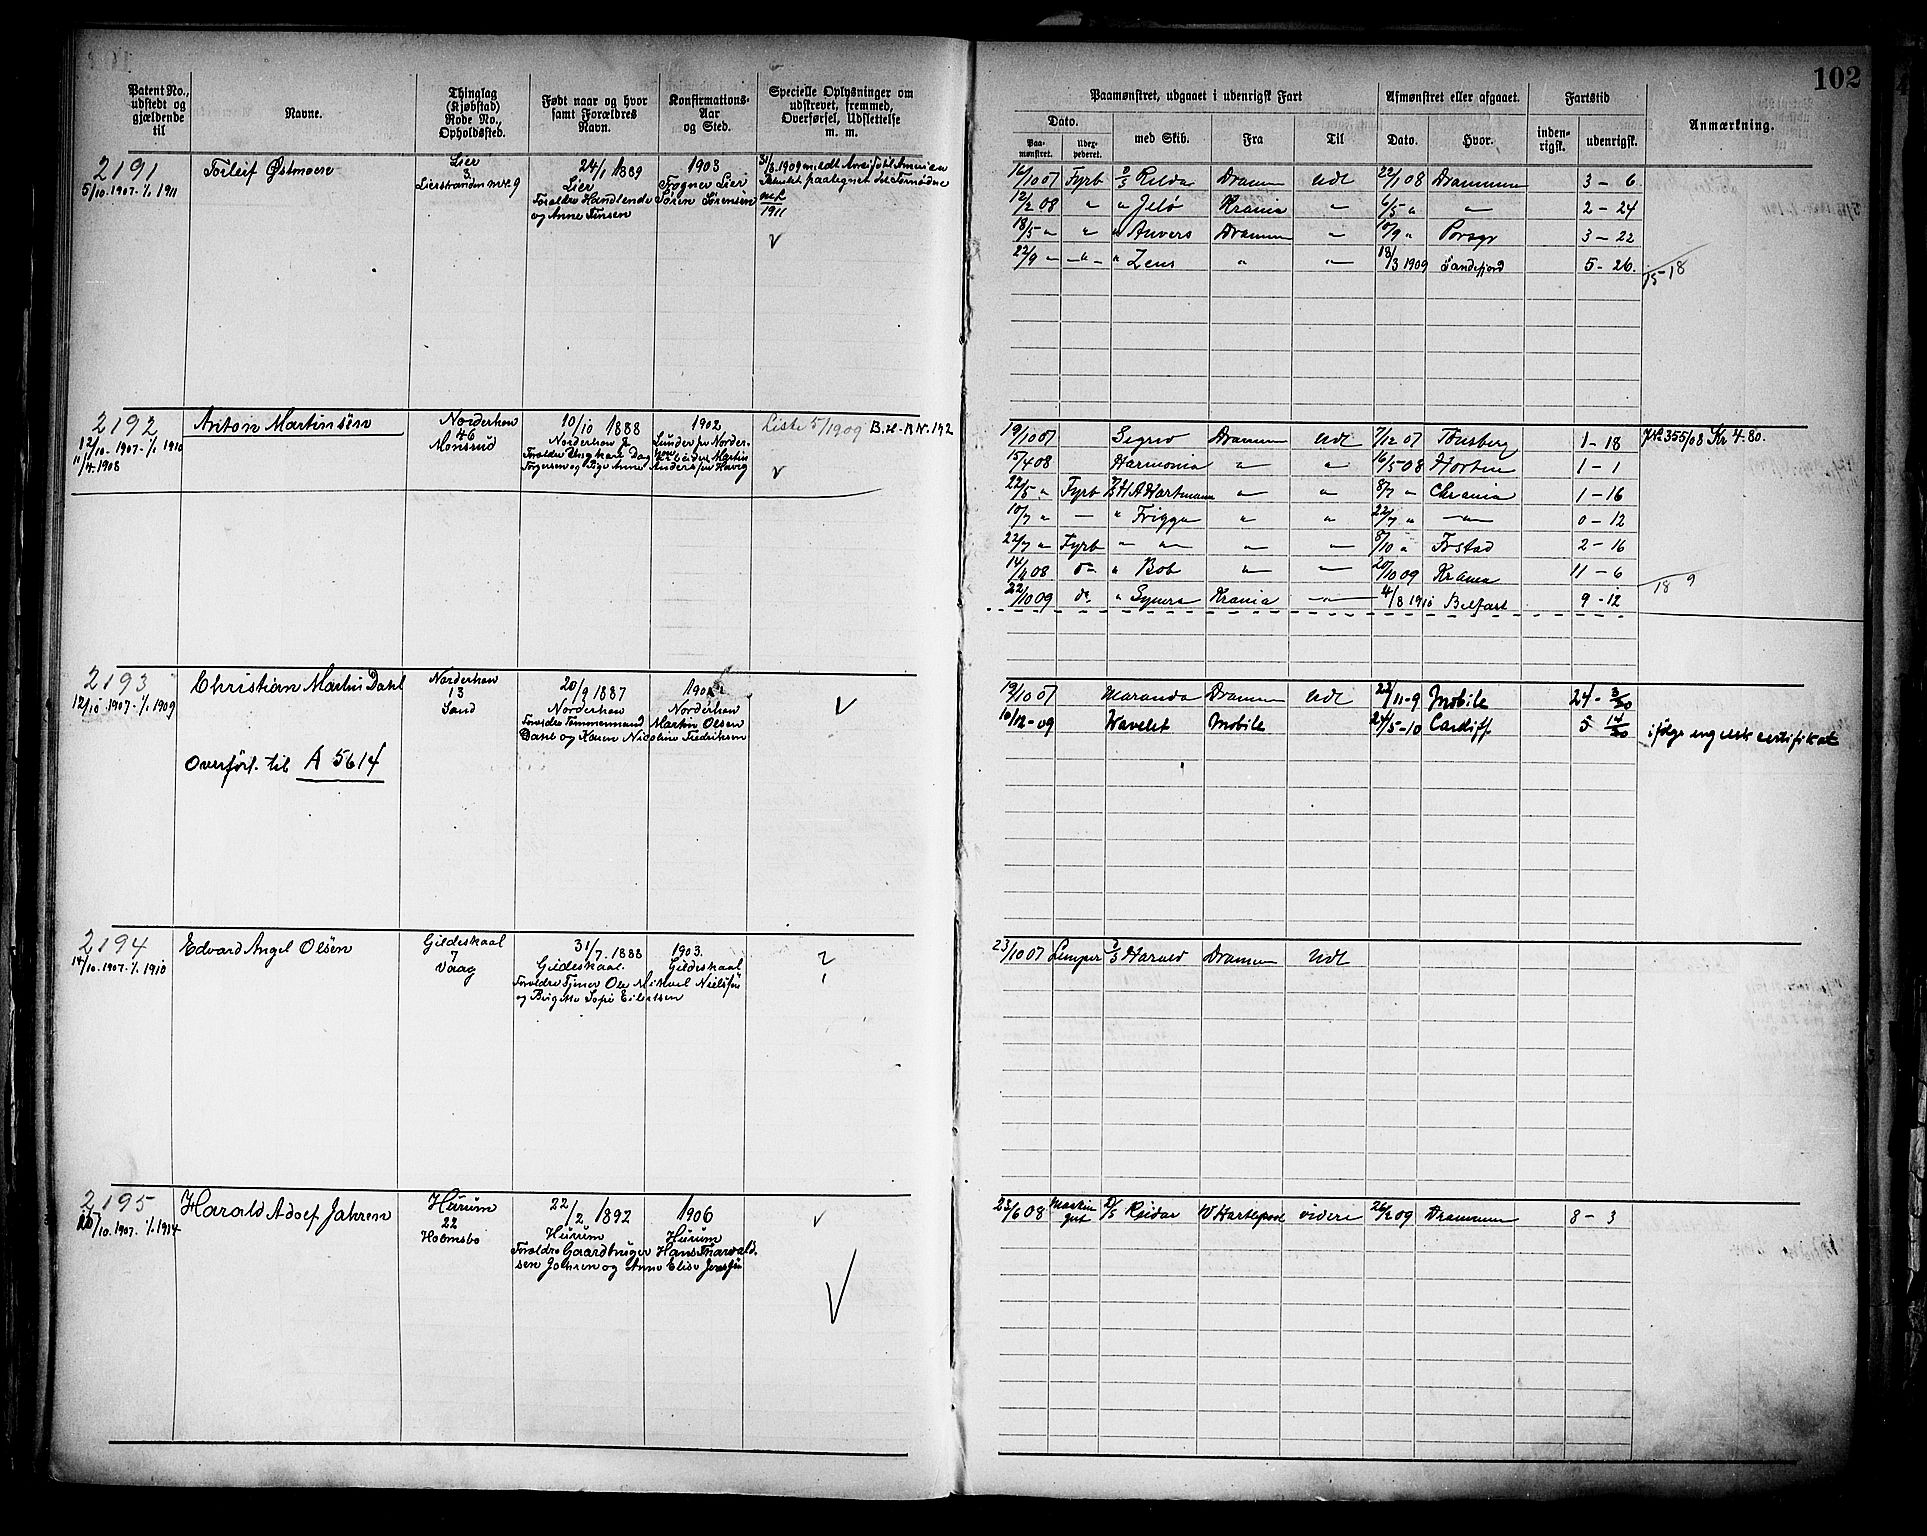 102
Patent No., udstedt og gjældende til
Navne.
Thinglag (Kjøbstad) Rode No., Opholdssted.
Født naar og hvor samt Forældres Navn.
Konfirmations-Aar og Sted.
Specielle Oplysninger om udstrevet, fremmed, Overførsel, Udslettelse m. m.
Paamønstret, udgaaet i udenrigsk Fart
Dato.
Paa-mønstret.
med Skib.
Fra
Til
Afmønstret eller afgaaet.
Dato.
Hvor.
Fartstid
inden-rigsk.
udenrigsk.
Anmærkning.
2191
5/10.1907-1/1 1911
Torleif Østmoen
Lier
3
Lierstranden
24/1 1889
Lier
Forældre Handlende Søren Sørensen
og Anne Jensen
1903
Frogner Lier
1911
16/10 07 Fyrb Reidar Dramm Udl 22/1 08 Drammen 3 - 6
12/2 08 " " Jelø Krania " 6/5 " " 2 - 24
18/5 " " " Anvers Dramm " 10/9 " Porsgr 3 - 22
22/9 " " " Zeus " " 18/3 1909 Sandefjord 5 - 26.
15-18
2192
12/10.1907-1/1 1910
11/4.1908
Anton Martinsen
Norderhov
46
Monserud
10/10 1888
Norderhov
1902
Liste 5/1909 B.H.-R Nr. 192
19/10 07 Sigrid Dramm Udl 7/12 07 Tønsberg 1 - 18 JNo 355/08 Kr 4.80.
15/4 08 Harmonia " " 16/5 08 Horten 1 - 1
22/5 " Fyrb H A Hartmann " " 8/7 " Chrania 1 - 16
10/7 " — " Frigga " " 22/7 " " 0 - 12
22/7 " Fyrb " " " " 8/10 " Frstad 2 - 16
" Bob " " 20/10 09 Krania 11 - 6
18 9
22/10 09 do " Krania " 4/8 1910 Belfast 9 - 12
2193
12/10.1907-1/1 1909
Christian Martin Dahl
Norderhov
13
Sand
20/9 1887
Norderhov
Forældre Tømmermand Martin Olsen
Dahl og Karen Nicoline Fredriksen
Norderhov
Overført til A 5614
19/10 07 Maranda Dramm Udl 22/11-9 Mobile 24 - 3/30
10/12-09 Wavelet Mobile 24/5-10 Cardiff 5 14/30
ifølge engelsk certifikat
2194
14/10.1907-1/1 1910
Edvard Angel Olsen
Gildeskaal
7
Vaag
31/7.1888
Gildeskaal.
Forældre Ole Mikael Nielsen
og
1903.
Gildeskaal
23/10 07 Lemper Harald Drammen Udl
2195
1907-1/1 1914
Harald Adolf Jahren
Hurum
22
Holmsbo
22/2 1892
Hurum
Forældre Gaardbruger Hans Thorvald-
sen Jahren og Anne Elise
1906
Hurum
23/6 08 Reidar W Hartlepool videre 26/2 09 Drammen 8 - 3